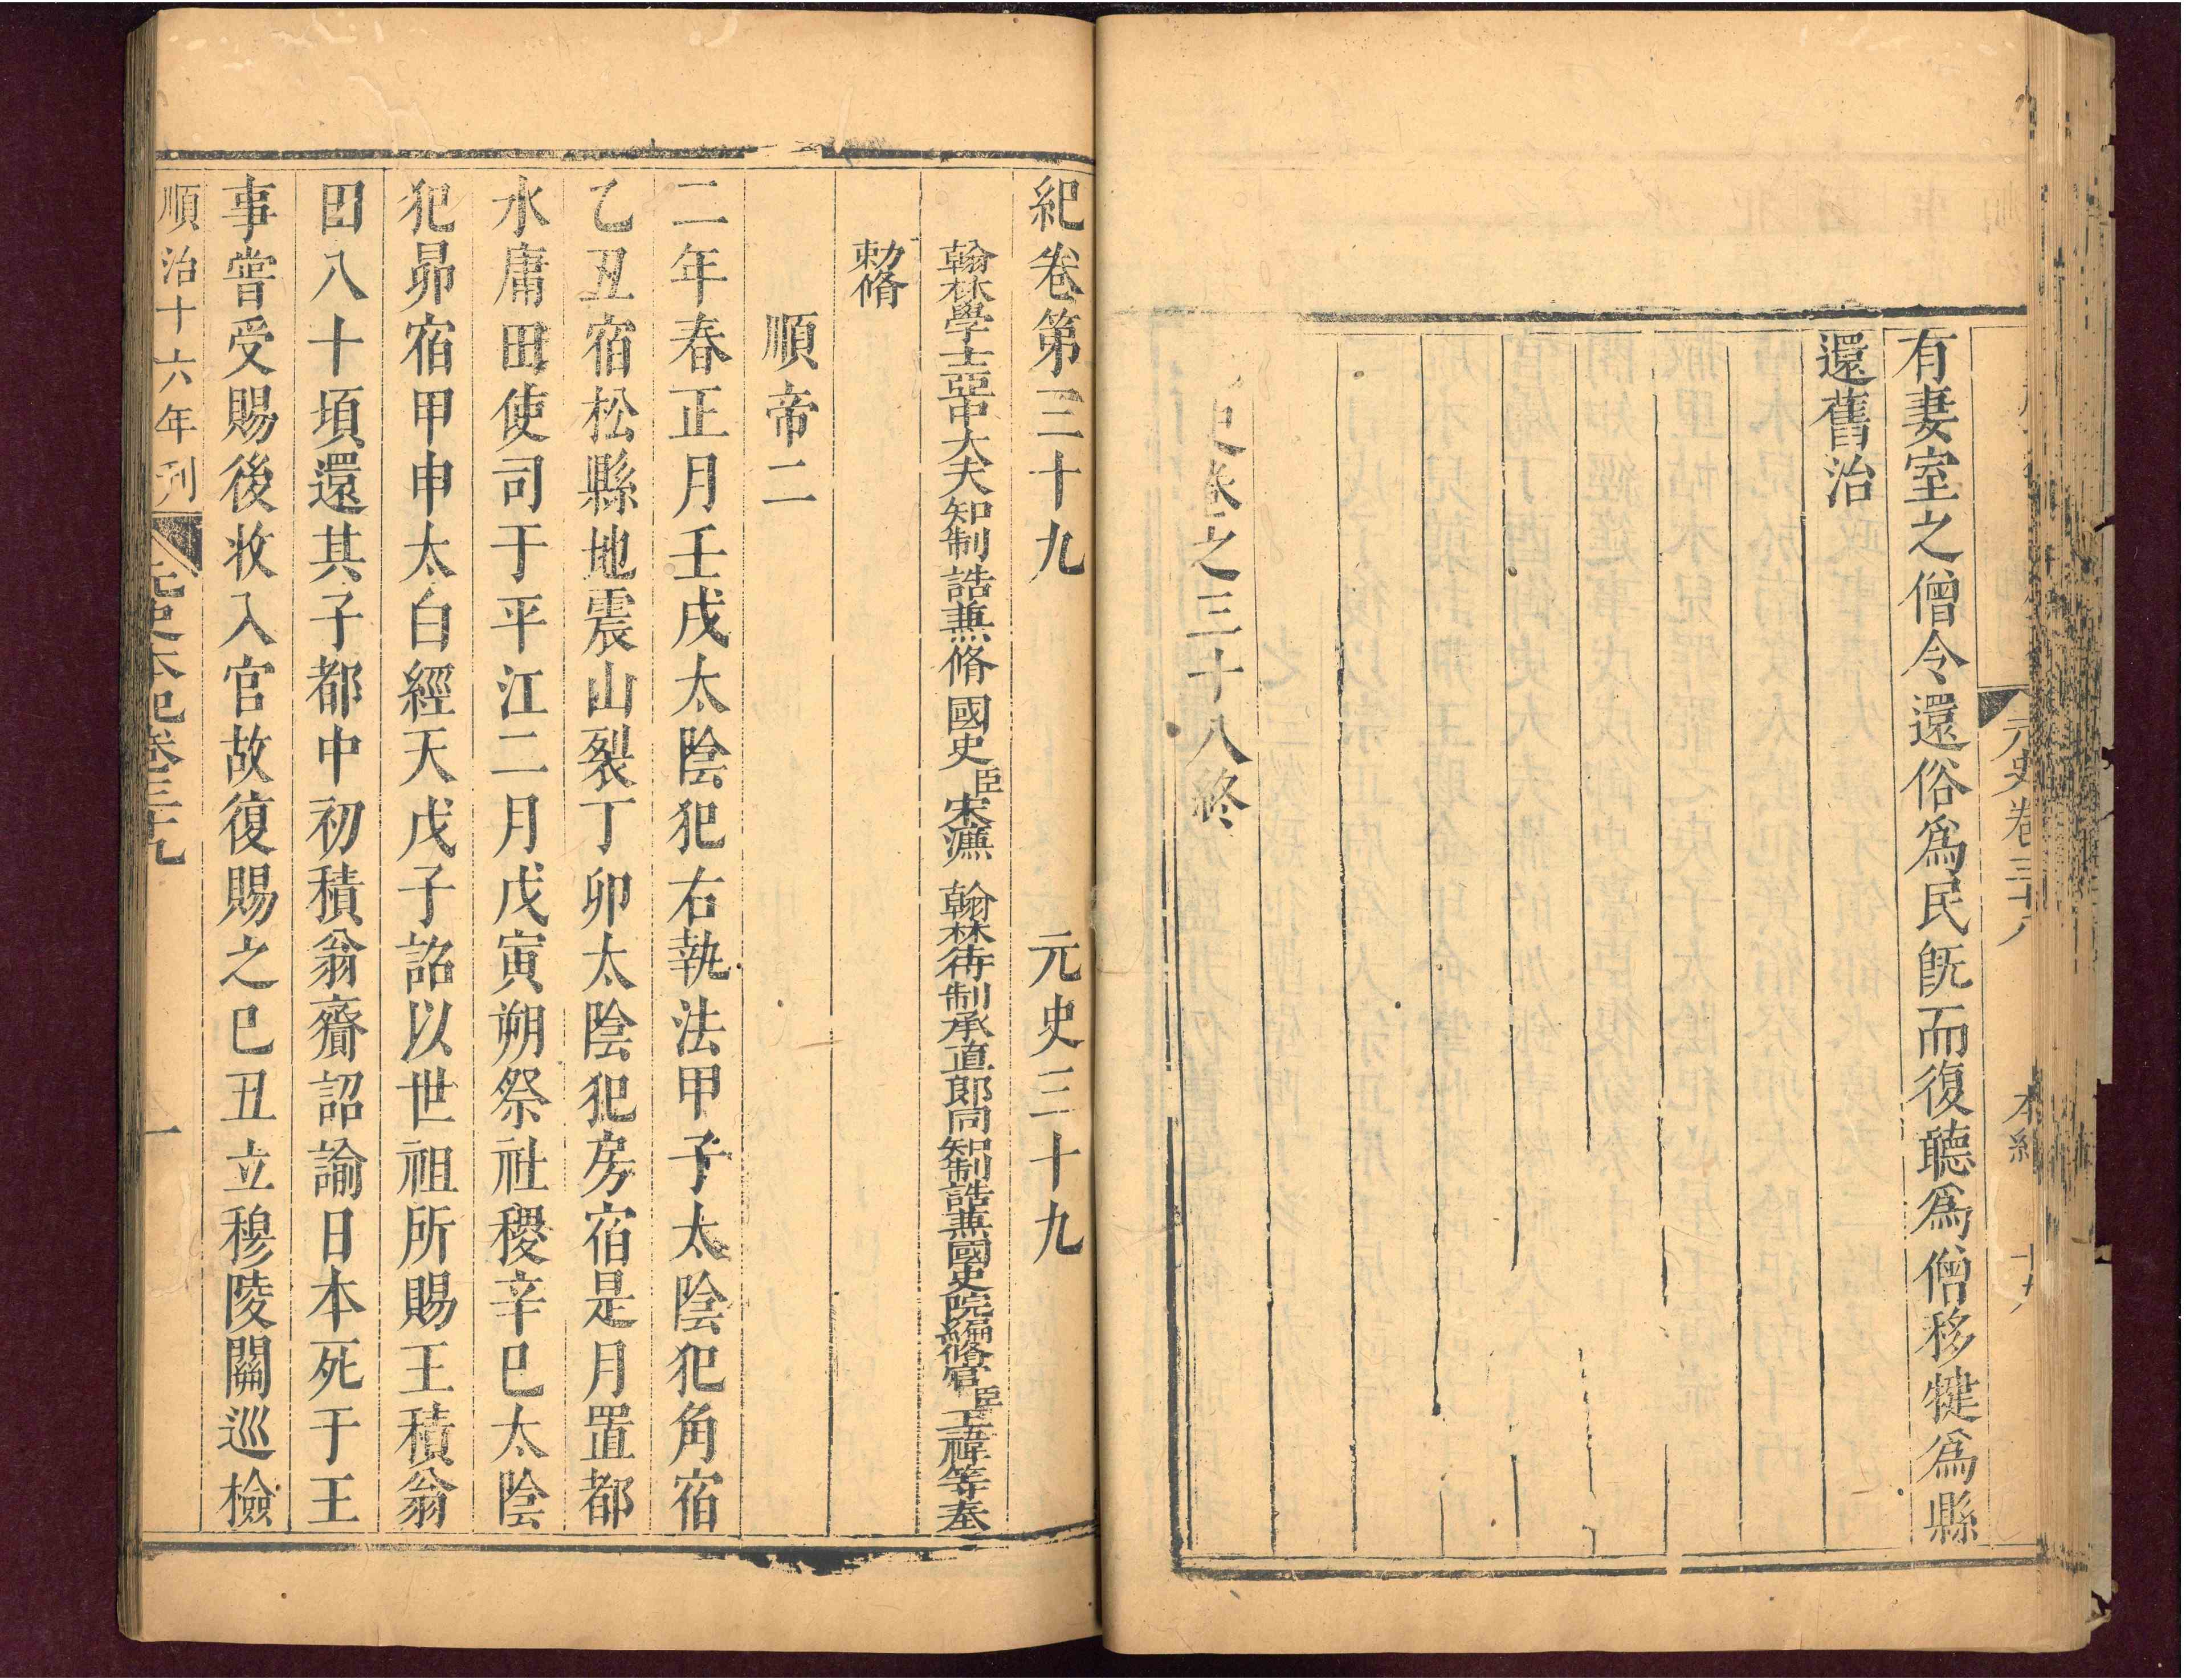 元史卷三十八 本紀
有妻室之僧令還俗爲民旣而復聽爲僧移犍爲縣
還舊治
史卷之三十八終
紀卷第三十九 元史三十九
翰林學士亞中大夫知制誥兼脩國史臣宋濂 翰林待制承直郎同知制誥兼國史院編脩官臣王禕等奉
勅脩
順帝二
二年春正月壬戌太陰犯右執法甲子太陰犯角宿
乙丑宿松縣地震山裂丁卯太陰犯房宿是月置都
水庸田使司于平江二月戊寅朔祭社稷辛巳太陰
犯昴宿甲申太白經天戊子詔以世祖所賜王積翁
田八十頃還其子都中初積翁齎詔諭日本死于王
事嘗受賜後收入官故復賜之已丑立穆陵關巡檢
順治十六年刊 元史本紀卷三十九 一